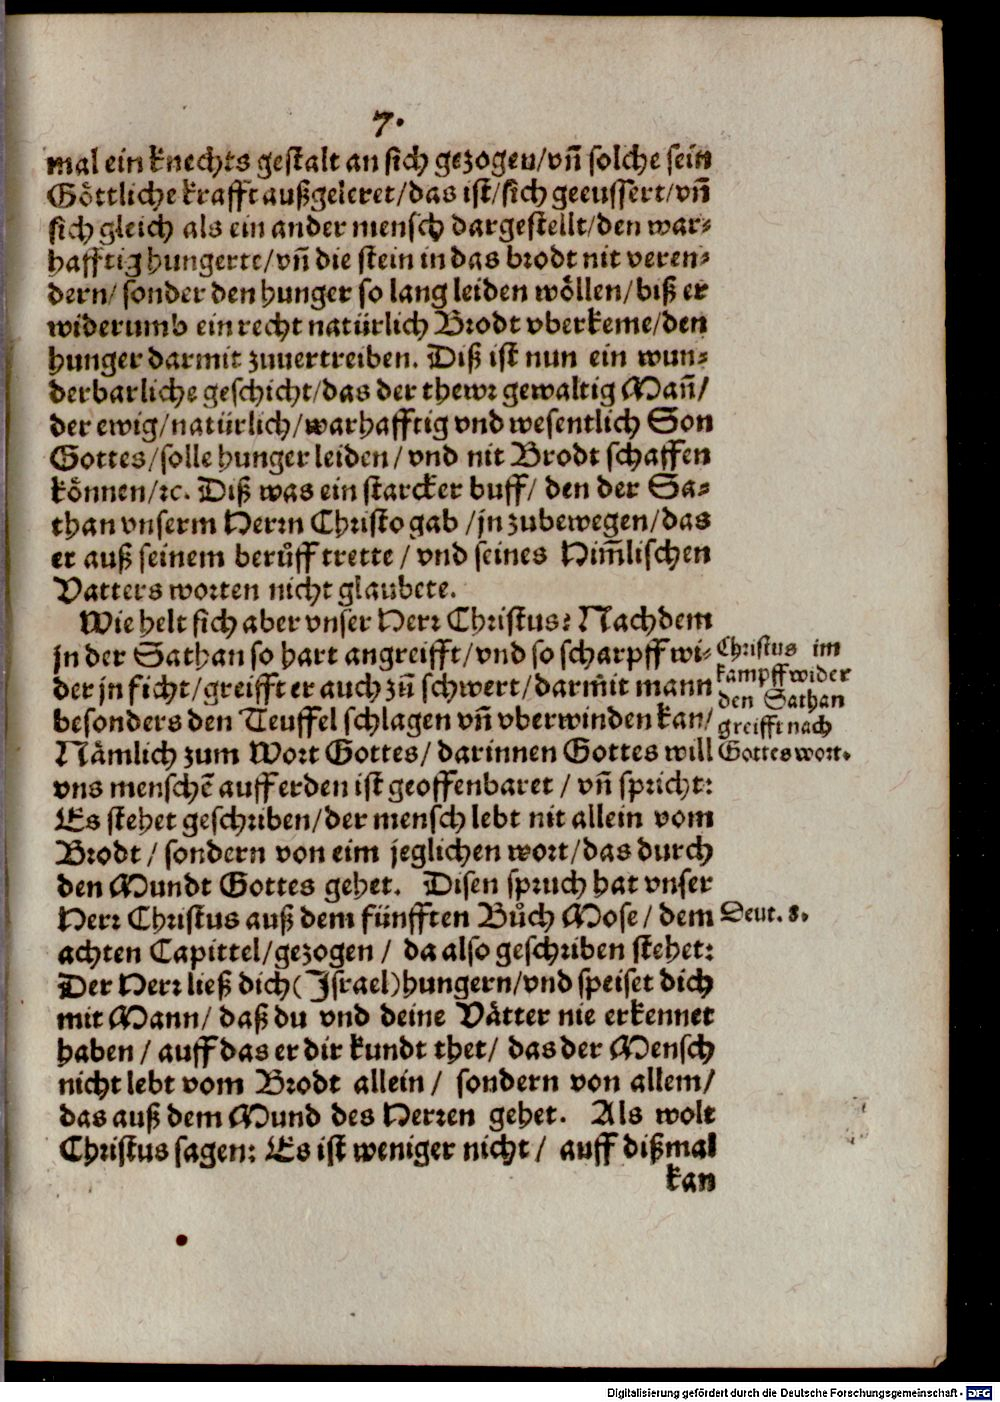 7.
mal ein knechts gestalt an sich gezogen/vñ solche sein
Göttliche krafft außgeleret/das ist/sich geeussert/vñ
sich gleich als ein ander mensch dargestellt/den war-
hafftig hungerte/vñ die stein in das brodt nit veren-
dern/ sonder den hunger so lang leiden wöllen/biß er
widerumb ein recht natürlich Brodt vberkeme/den
hunger darmit zuuertreiben. Diß ist nun ein wun-
derbarliche geschicht/das der thewr gewaltig Mañ/
der ewig/natürlich/warhafftig vnd wesentlich Son
Gottes/solle hunger leiden/vnd nit Brodt schaffen
können/ꝛc. Diß was ein starcker buff/ den der Sa-
than vnserm Herrn Christo gab /jn zubewegen/das
er auß seinem berůff trette / vnd seines Him̃lischen
Vatters worten nicht glaubete.
Wie helt sich aber vnser Herr Christus? Nachdem
jn der Sathan so hart angreifft/vnd so scharpff wi-
der jn ficht/greifft er auch zũ schwert/darm̃it mann
besonders den Teuffel schlagen vñ vberwinden kan/
Nämlich zum Wort Gottes/ darinnen Gottes will
vns menschẽ auff erden ist geoffenbaret / vñ spricht:
Es stehet geschriben/der mensch lebt nit allein vom
Brodt / sondern von eim jeglichen wort/das durch
den Mundt Gottes gehet. Disen spruch hat vnser
Herr Christus auß dem fünfften Bůch Mose/ dem
achten Capittel/gezogen / da also geschriben stehet:
Der Herr ließ dich (Israel) hungern/vnd speiset dich
mit Mann/ daß du vnd deine Vätter nie erkennet
haben / auff das er dir kundt thet/ das der Mensch
nicht lebt vom Brodt allein / sondern von allem/
das auß dem Mund des Herren gehet. Als wolt
Christus sagen: Es ist weniger nicht / auff dißmal
kan
Christus im
kampff wider
den Sathan
greifft nach
Gottes wort.
Deut. 8.
Digitalisierung gefördert durch die Deutsche Forschungsgemeinschaft - DFG